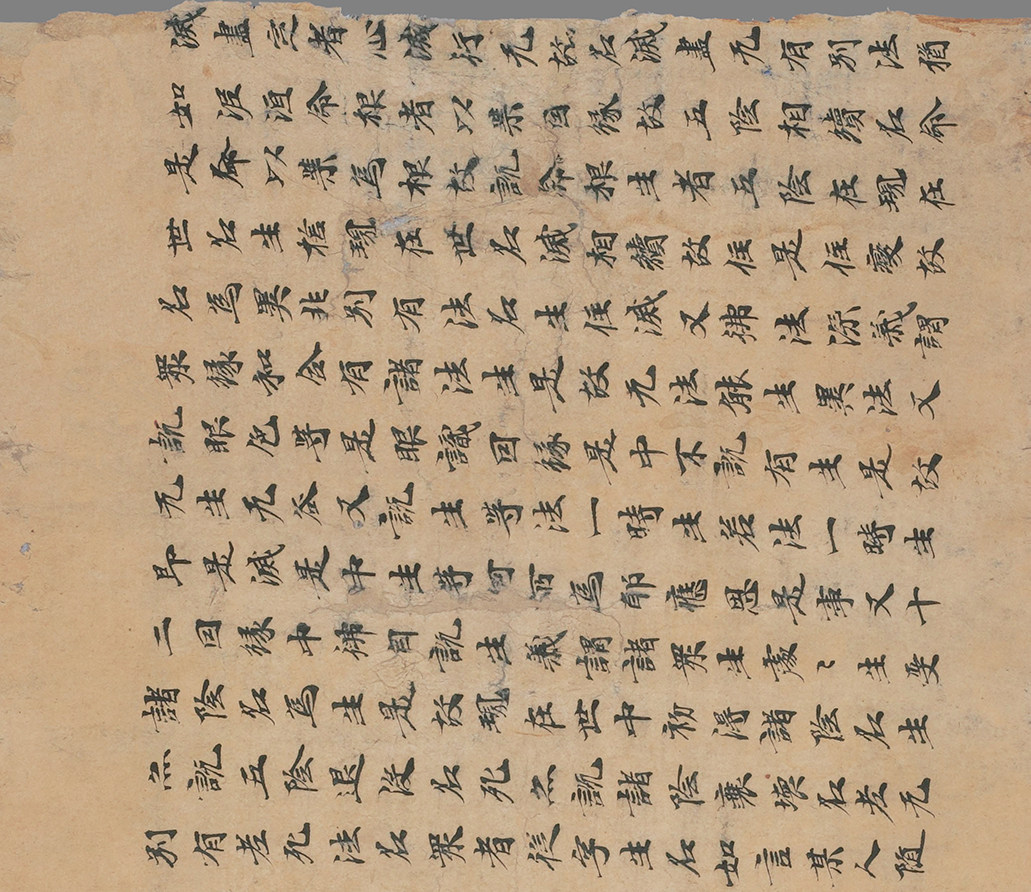 滅盡定者心滅行无故名滅盡无有別法猶
如泥洹命根者以業因緣故五陰相續名命
是命以業爲根故說命根生者五陰在現在
世名生捨現在世名滅相續故住是住變故
名爲異非別有法名生住滅又佛法深義謂
衆緣和合有諸法生是故无法能生異法又
說眼色等是眼識因緣是中不說有生是故
无生无咎又說生等法一時生若法一時生
即是滅是中生等何所爲耶應思是事又十
二因緣中佛自說生義謂諸衆生處〻生受
諸陰名爲生是故現在世中初得諸陰名生
亦說五陰退沒名死亦說諸陰衰壞名老无
別有老死法名衆者從字生名如言某人随